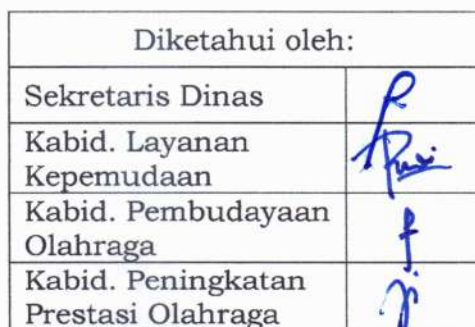 Diketahui oleh:
Sekretaris Dinas
Kabid. Layanan
Kepemudaan
Kabid. Pembudayaan
Olahraga
Kabid. Peningkatan
Prestasi Olahraga